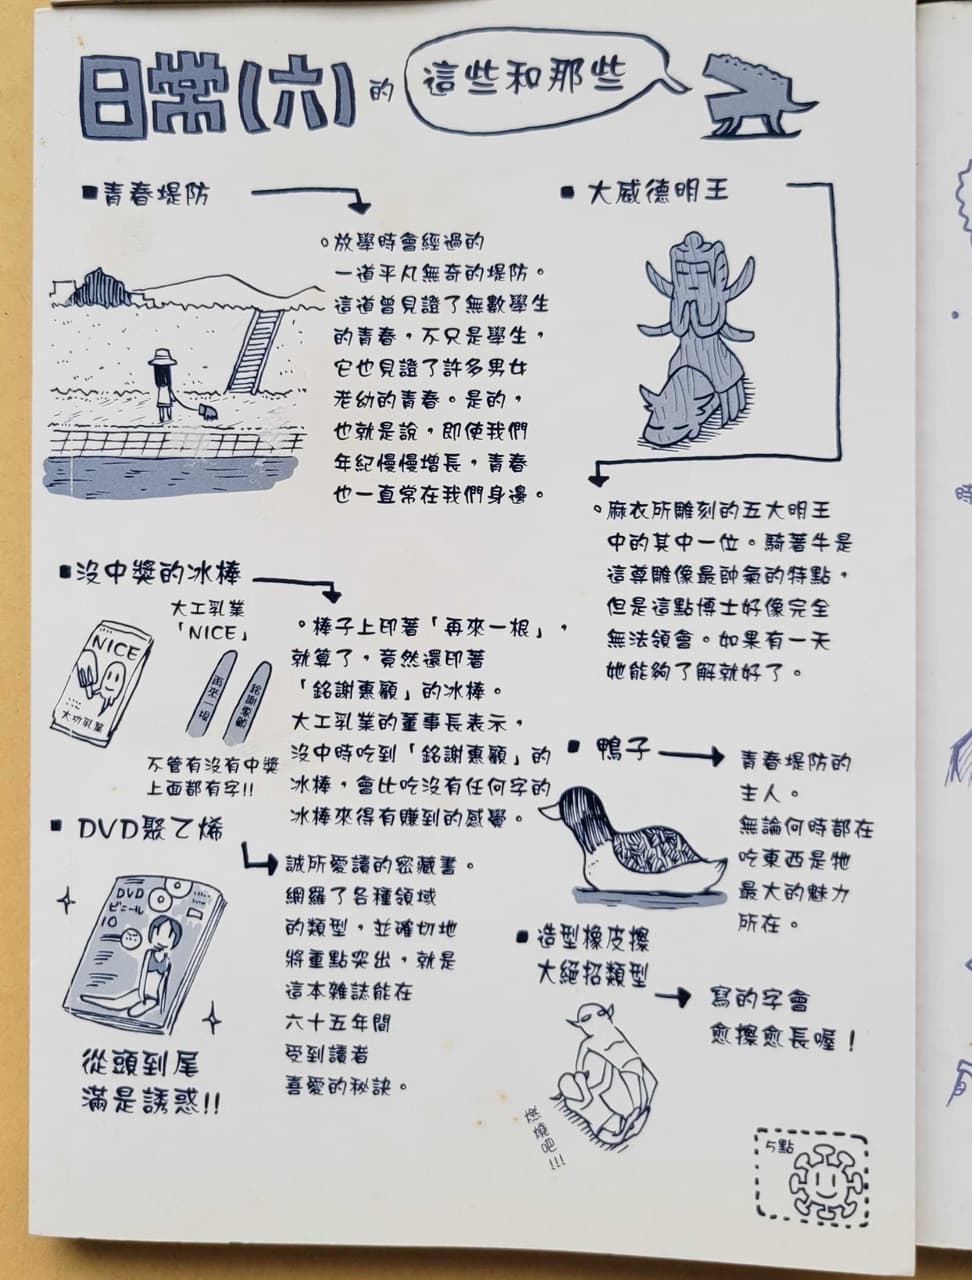 日常(六)的這些和那些
■青春堤防
。放學時會經過的
一道平凡無奇的堤防。
這道曾見證了無數學生
的青春，不只是學生，
它也見證了許多男女
老幼的青春。是的，
也就是說，即使我們
年紀慢慢增長，青春
也一直常在我們身邊。
■大威德明王
。麻衣所雕刻的五大明王
中的其中一位。騎著牛是
這尊雕像最帥氣的特點，
但是這點博士好像完全
無法領會。如果有一天
她能夠了解就好了。
■沒中獎的冰棒
大工乳業
「NICE」
NICE
大功乳業
再來一根
銘謝惠顧
不管有沒有中獎
上面都有字!!
。棒子上印著「再來一根」，
就算了，竟然還印著
「銘謝惠顧」的冰棒。
大工乳業的董事長表示，
沒中時吃到「銘謝惠顧」的
冰棒，會比吃沒有任何字的
冰棒來得有賺到的感覺。
■鴨子
青春堤防的
主人。
無論何時都在
吃東西是牠
最大的魅力
所在。
■DVD聚乙烯
DVD
ビニール
10
從頭到尾
滿是誘惑!!
誠所愛讀的密藏書。
網羅了各種領域
的類型，並確切地
將重點突出，就是
這本雜誌能在
六十五年間
受到讀者
喜愛的秘訣。
■造型橡皮擦
大絕招類型
寫的字會
愈擦愈長喔！
燃燒吧!!!
5點